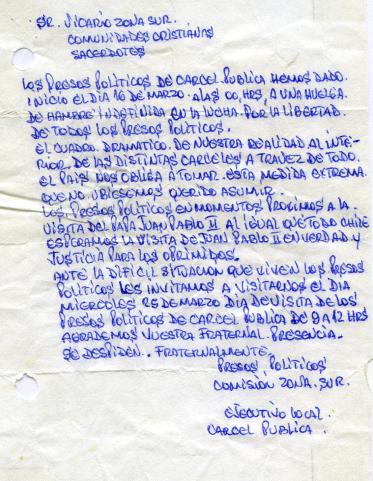 SR. VICARIO ZONA SUR.
COMUNIDADES CRISTIANAS
SACERDOTES
LOS PRESOS POLITICOS DE CARCEL PUBLICA HEMOS DADO.
INICIO EL DIA 16 DE MARZO. A LAS 00, HRS, A UNA HUELGA.
DE HAMBRE INDEFINIDA EN LA LUCHA. POR LA LIBERTAD.
DE TODOS LOS PRESOS POLITICOS.
EL CUADRO. DRAMATICO. DE NUESTRA REALIDAD AL INTE-
RIOR. DE LAS DISTINTAS CARCELES A TRAVEZ DE TODO.
EL PAIS NOS OBLIGA A TOMAR. ESTA MEDIDA EXTREMA.
QUE NO UBIESEMOS QUERIDO ASUMIR.
LOS PRESOS POLITICOS EN MOMENTOS PROXIMOS A LA.
VISITA DEL PAPA JUAN PABLO II. AL IGUAL QUE TODO CHILE
ESPERAMOS LA VISITA DE JUAN PABLO II EN VERDAD. Y
JUSTICIA PARA LOS OPRIMIDOS.
ANTE LA DIFICIL SITUACION QUE VIVEN LOS PRESOS
POLITICOS LES INVITAMOS A VISITARNOS EL DIA
MIERCOLES 25 DE MARZO DIA DE VISITA DE LOS
PRESOS POLITICOS DE CARCEL PUBLICA DE 9 A 12 HRS
AGRADEMOS VUESTRA FRATERNAL. PRESENCIA.
SE DESPIDEN.. FRATERNALMENTE.
PRESOS POLITICOS
COMISION ZONA. SUR.
EJECUTIVO LOCAL.
CARCEL PUBLICA.